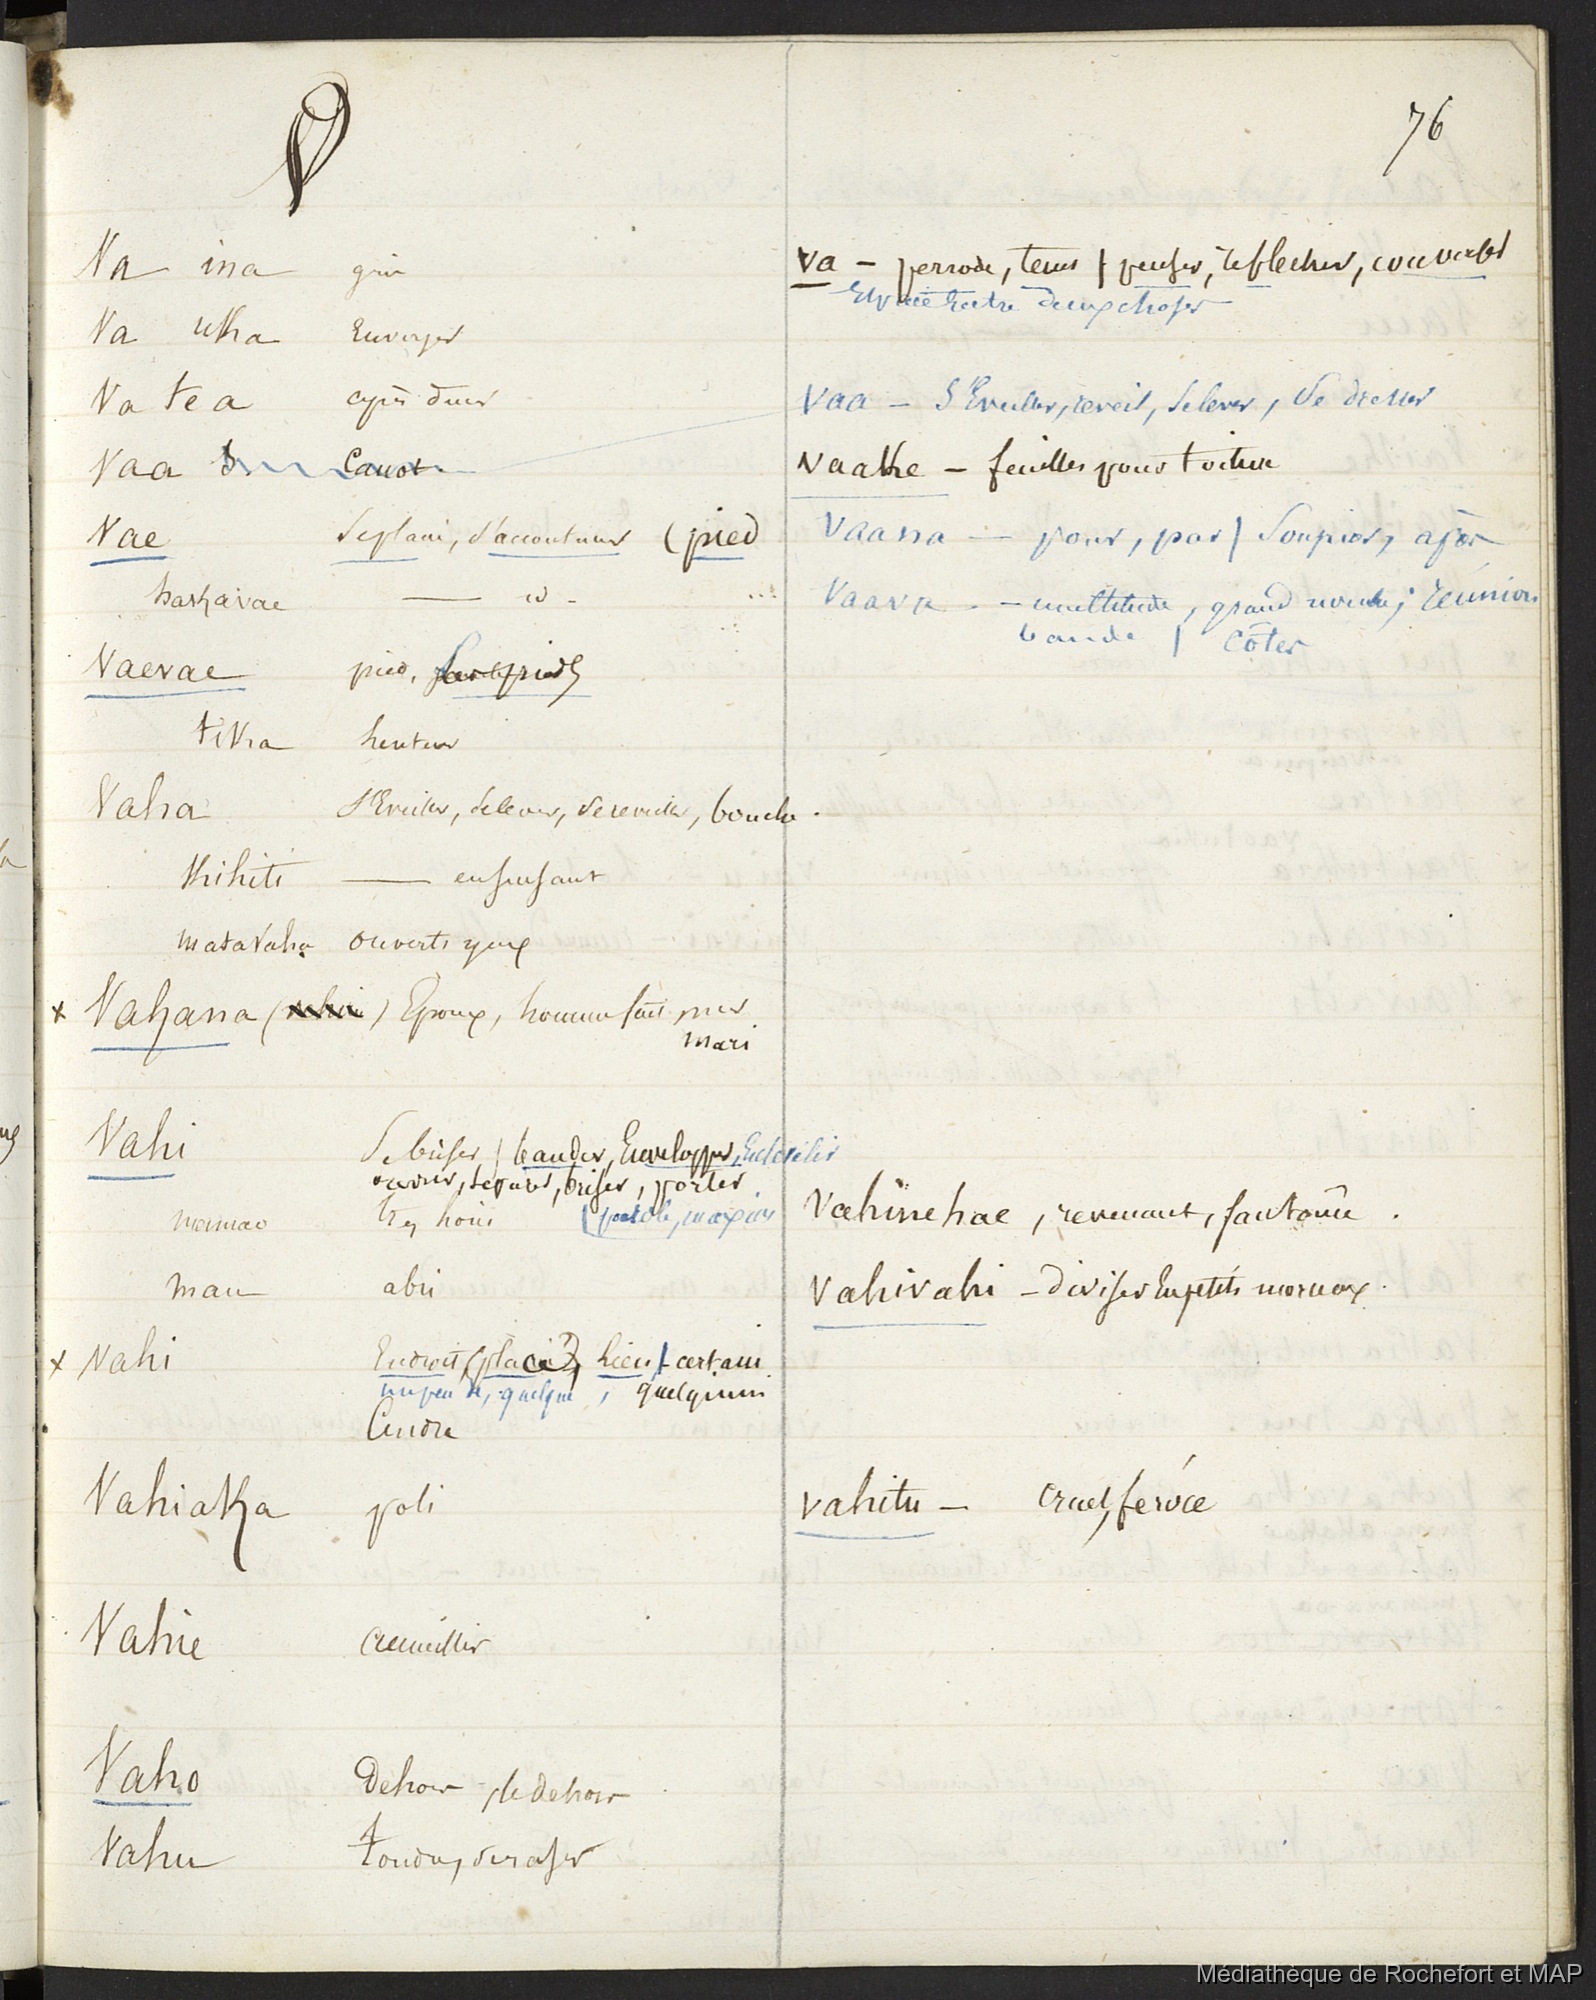 V
76
Va ina
Va ukha
Va tea après dîner
Vaa canot
Vae Se plaire, s'accoutumer (pied
hakavae — id -
Vaevae pied,
tikha hauteur
Vaha S'Eveiller, se lever, se reveiller, bouche.
Khihiti —
matavaha ouverts yeux
x Vahana ( ) Epoux, homme fait, mur
mari
Vahi Se briser / bander, Envelopper, Ensevelir
ouvrir, separer, briser, porter
(parole, maxime
mau abri
x Vahi Endroit, (place?), lieu / certain
un peu de, quelque, quelqu'un
Cendre
Vahiaka poli
Vahie accueillir
Vaho Dehors - le dehors
Vahu tondre, se raser
Va - periode, tems / penser, reflechir, converser
Espace Entre deux choses
Vaa - S'Eveiller, reveil, se lever, se dresser
Vaakhe - feuilles pour toiture
Vaana - pour, par /
Vaava - multitude, grand nombre; réunion
bande / côtes
Vahinehae, revenant, fantôme.
Vahivahi - diviser En petits morceaux.
Vahitu - cruel, feroce
Médiathèque de Rochefort et MAP